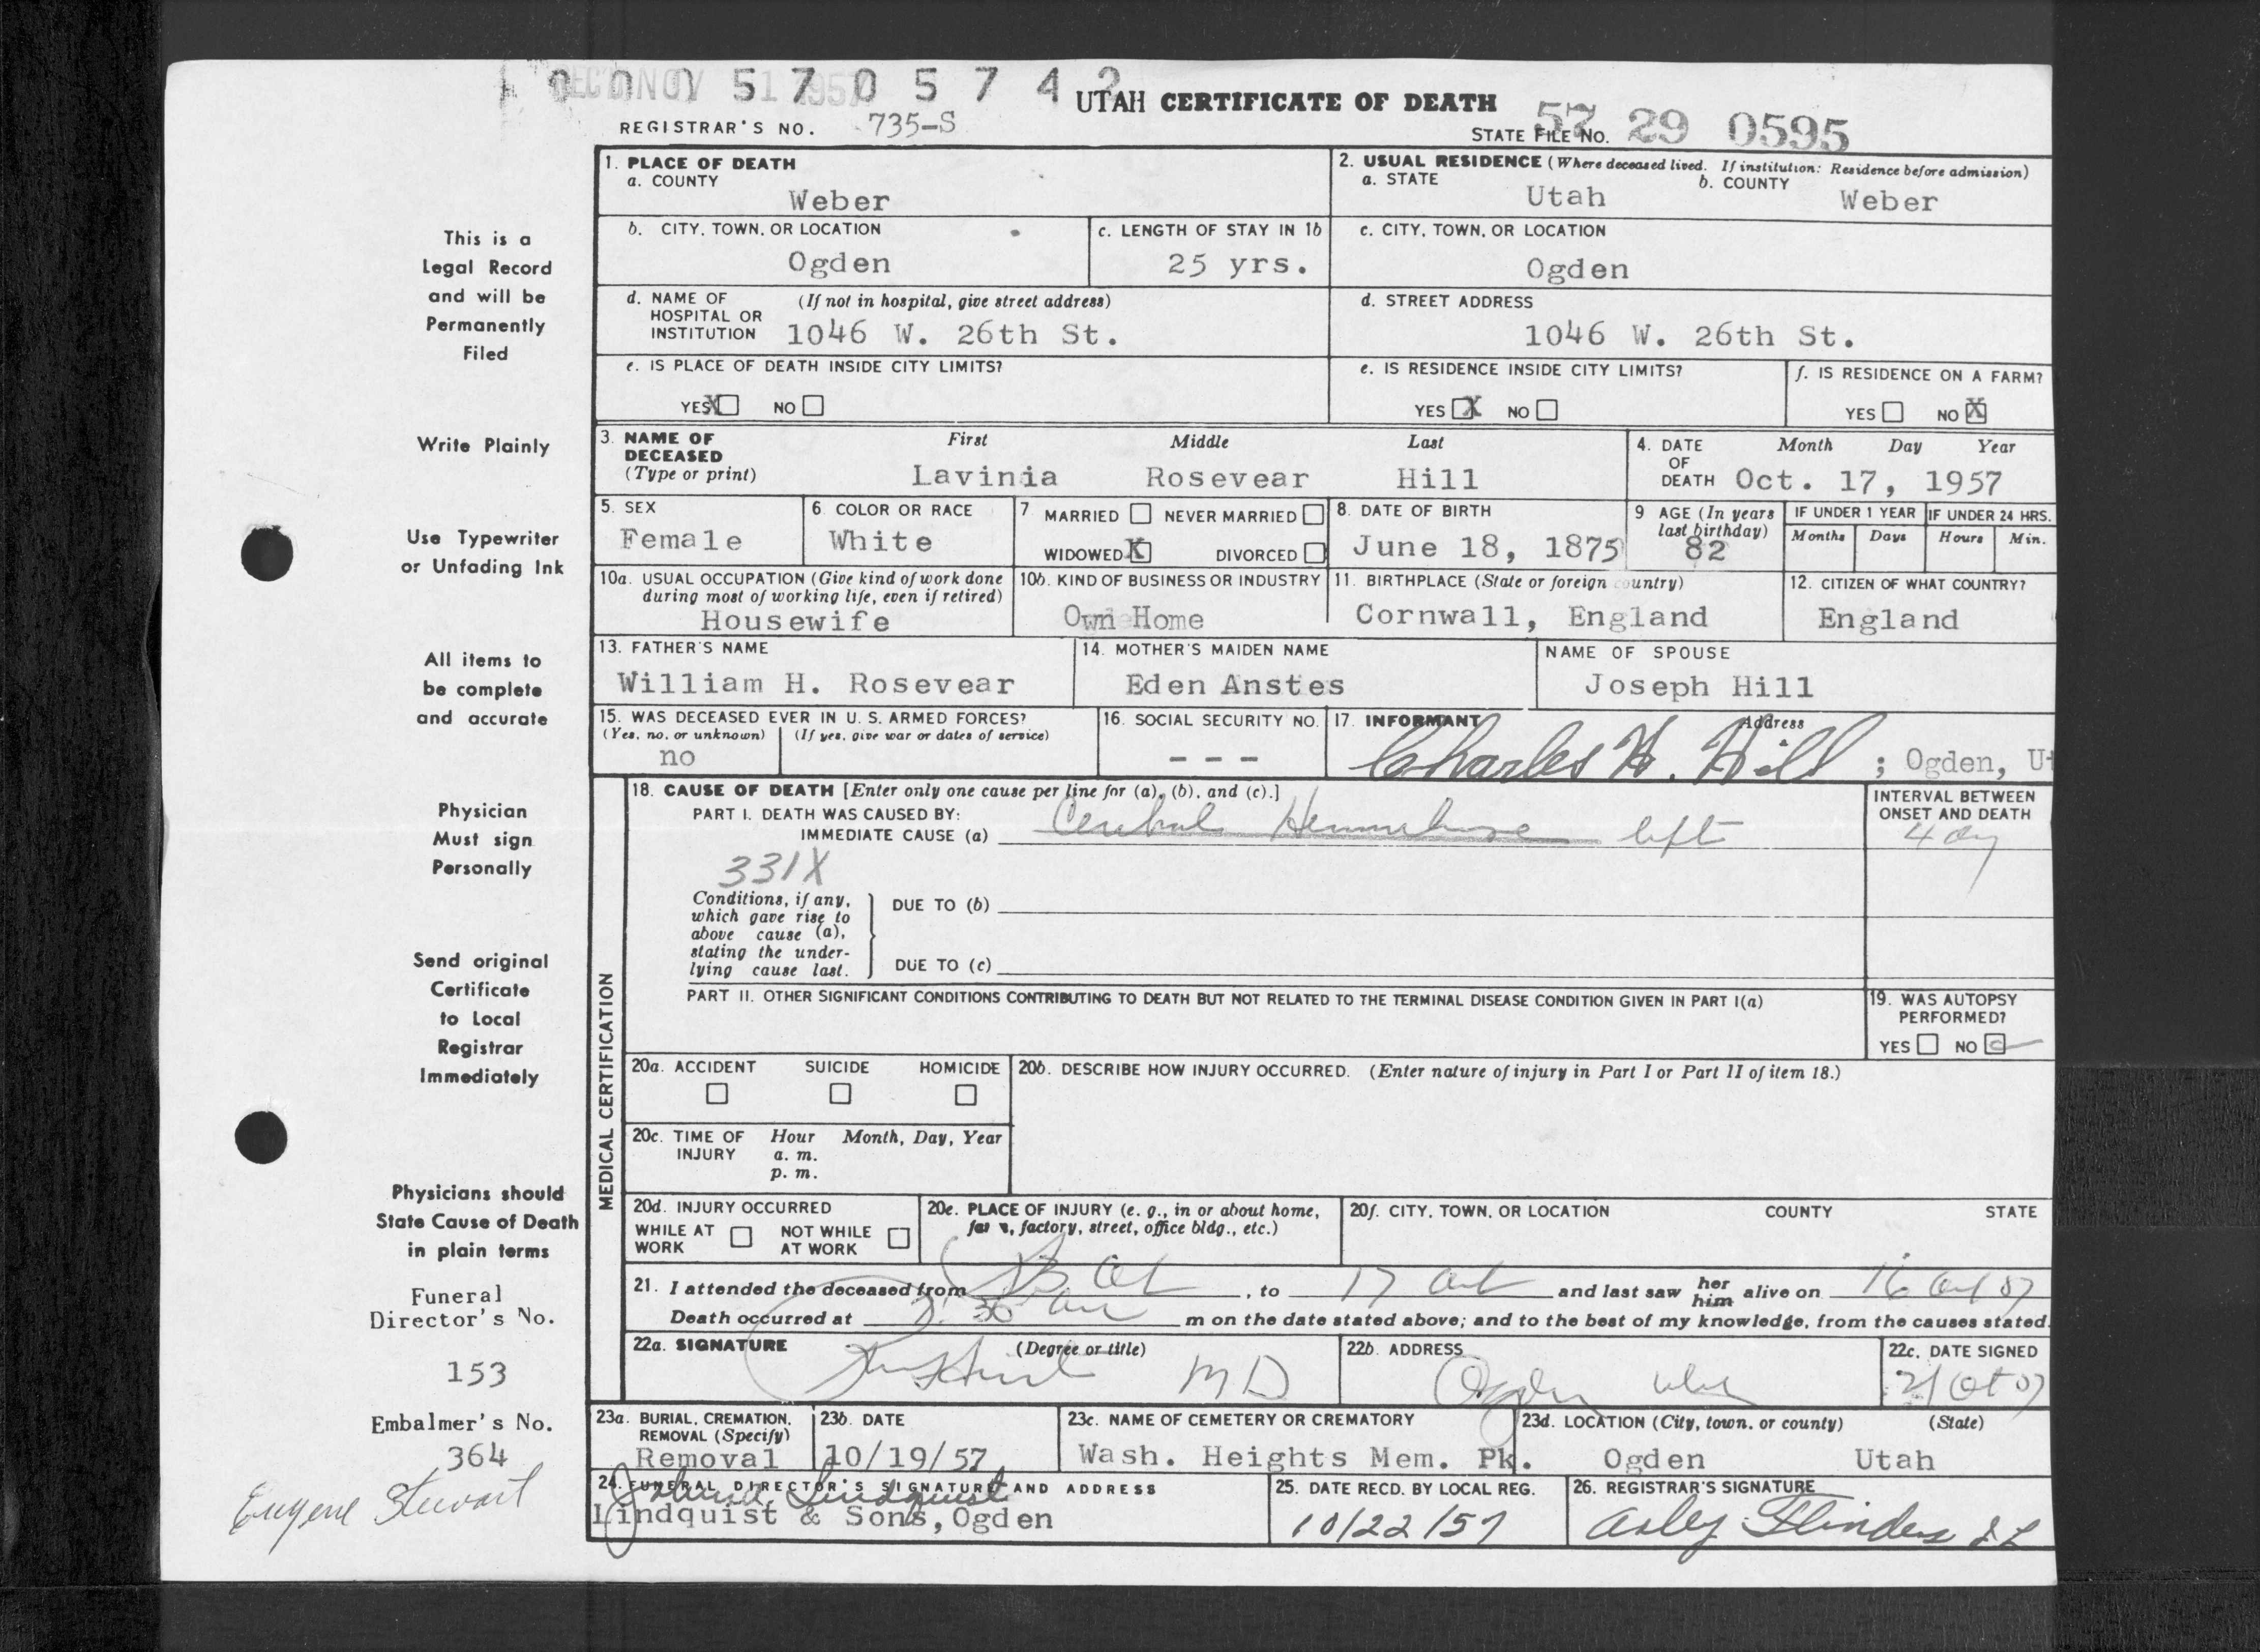 1 0 0 0 5 7 0 5 7 4 2
UTAH CERTIFICATE OF DEATH
REGISTRAR'S NO. 735-S
STATE FILE NO. 57 29 0595
1. PLACE OF DEATH
a. COUNTY
Weber
2. USUAL RESIDENCE (Where deceased lived. If institution: Residence before admission)
a. STATE Utah b. COUNTY Weber
b. CITY, TOWN, OR LOCATION
Ogden
c. LENGTH OF STAY IN 1b
25 yrs.
c. CITY, TOWN, OR LOCATION
Ogden
d. NAME OF HOSPITAL OR INSTITUTION (If not in hospital, give street address)
1046 W. 26th St.
d. STREET ADDRESS
1046 W. 26th St.
e. IS PLACE OF DEATH INSIDE CITY LIMITS?
YES X NO
e. IS RESIDENCE INSIDE CITY LIMITS?
YES X NO
f. IS RESIDENCE ON A FARM?
YES NO X
3. NAME OF DECEASED (Type or print)
First Middle Last
Lavinia Rosevear Hill
4. DATE OF DEATH Month Day Year
Oct. 17, 1957
5. SEX
Female
6. COLOR OR RACE
White
7. MARRIED NEVER MARRIED
WIDOWED X DIVORCED
8. DATE OF BIRTH
June 18, 1875
9 AGE (In years last birthday)
82
IF UNDER 1 YEAR IF UNDER 24 HRS.
Months Days Hours Min.
10a. USUAL OCCUPATION (Give kind of work done during most of working life, even if retired)
Housewife
10b. KIND OF BUSINESS OR INDUSTRY
Own Home
11. BIRTHPLACE (State or foreign country)
Cornwall, England
12. CITIZEN OF WHAT COUNTRY?
England
13. FATHER'S NAME
William H. Rosevear
14. MOTHER'S MAIDEN NAME
Eden Anstes
NAME OF SPOUSE
Joseph Hill
15. WAS DECEASED EVER IN U. S. ARMED FORCES?
(Yes, no, or unknown) (If yes, give war or dates of service)
no
16. SOCIAL SECURITY NO.
- - -
17. INFORMANT Address
Charles H. Hill ; Ogden, Ut
MEDICAL CERTIFICATION
18. CAUSE OF DEATH [Enter only one cause per line for (a), (b), and (c).]
PART I. DEATH WAS CAUSED BY:
IMMEDIATE CAUSE (a) Cerebral Hemorrhage left
INTERVAL BETWEEN ONSET AND DEATH
4 day
331X
Conditions, if any, which gave rise to above cause (a), stating the underlying cause last.
DUE TO (b)
DUE TO (c)
PART II. OTHER SIGNIFICANT CONDITIONS CONTRIBUTING TO DEATH BUT NOT RELATED TO THE TERMINAL DISEASE CONDITION GIVEN IN PART I(a)
19. WAS AUTOPSY PERFORMED?
YES NO
20a. ACCIDENT SUICIDE HOMICIDE
20b. DESCRIBE HOW INJURY OCCURRED. (Enter nature of injury in Part I or Part II of item 18.)
20c. TIME OF INJURY Hour Month, Day, Year
a. m.
p. m.
20d. INJURY OCCURRED
WHILE AT WORK NOT WHILE AT WORK
20e. PLACE OF INJURY (e. g., in or about home, farm, factory, street, office bldg., etc.)
20f. CITY, TOWN, OR LOCATION COUNTY STATE
21. I attended the deceased from Oct, to 17 Oct and last saw her him alive on 16 Oct 57
Death occurred at 30 am m on the date stated above; and to the best of my knowledge, from the causes stated.
22a. SIGNATURE (Degree or title)
MD
22b. ADDRESS
Ogden Utah
22c. DATE SIGNED
21 Oct 57
23a. BURIAL, CREMATION, REMOVAL (Specify)
Removal
23b. DATE
10/19/57
23c. NAME OF CEMETERY OR CREMATORY
Wash. Heights Mem. Pk.
23d. LOCATION (City, town, or county) (State)
Ogden Utah
24. FUNERAL DIRECTOR'S SIGNATURE AND ADDRESS
Lindquist
Lindquist & Sons, Ogden
25. DATE RECD. BY LOCAL REG.
10/22/57
26. REGISTRAR'S SIGNATURE
Flinders
This is a
Legal Record
and will be
Permanently
Filed
Write Plainly
Use Typewriter
or Unfading Ink
All items to
be complete
and accurate
Physician
Must sign
Personally
Send original
Certificate
to Local
Registrar
Immediately
Physicians should
State Cause of Death
in plain terms
Funeral
Director's No.
153
Embalmer's No.
364
Eugene Stewart